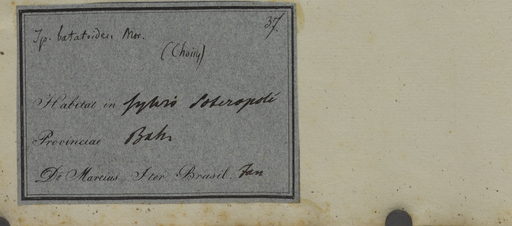 37.
Ip. batatoides Mor.
(Choisy)
Habitat in sylvis Soteropoli
Provinciae Bah.
Dr Martius Iter Brasil. Jan